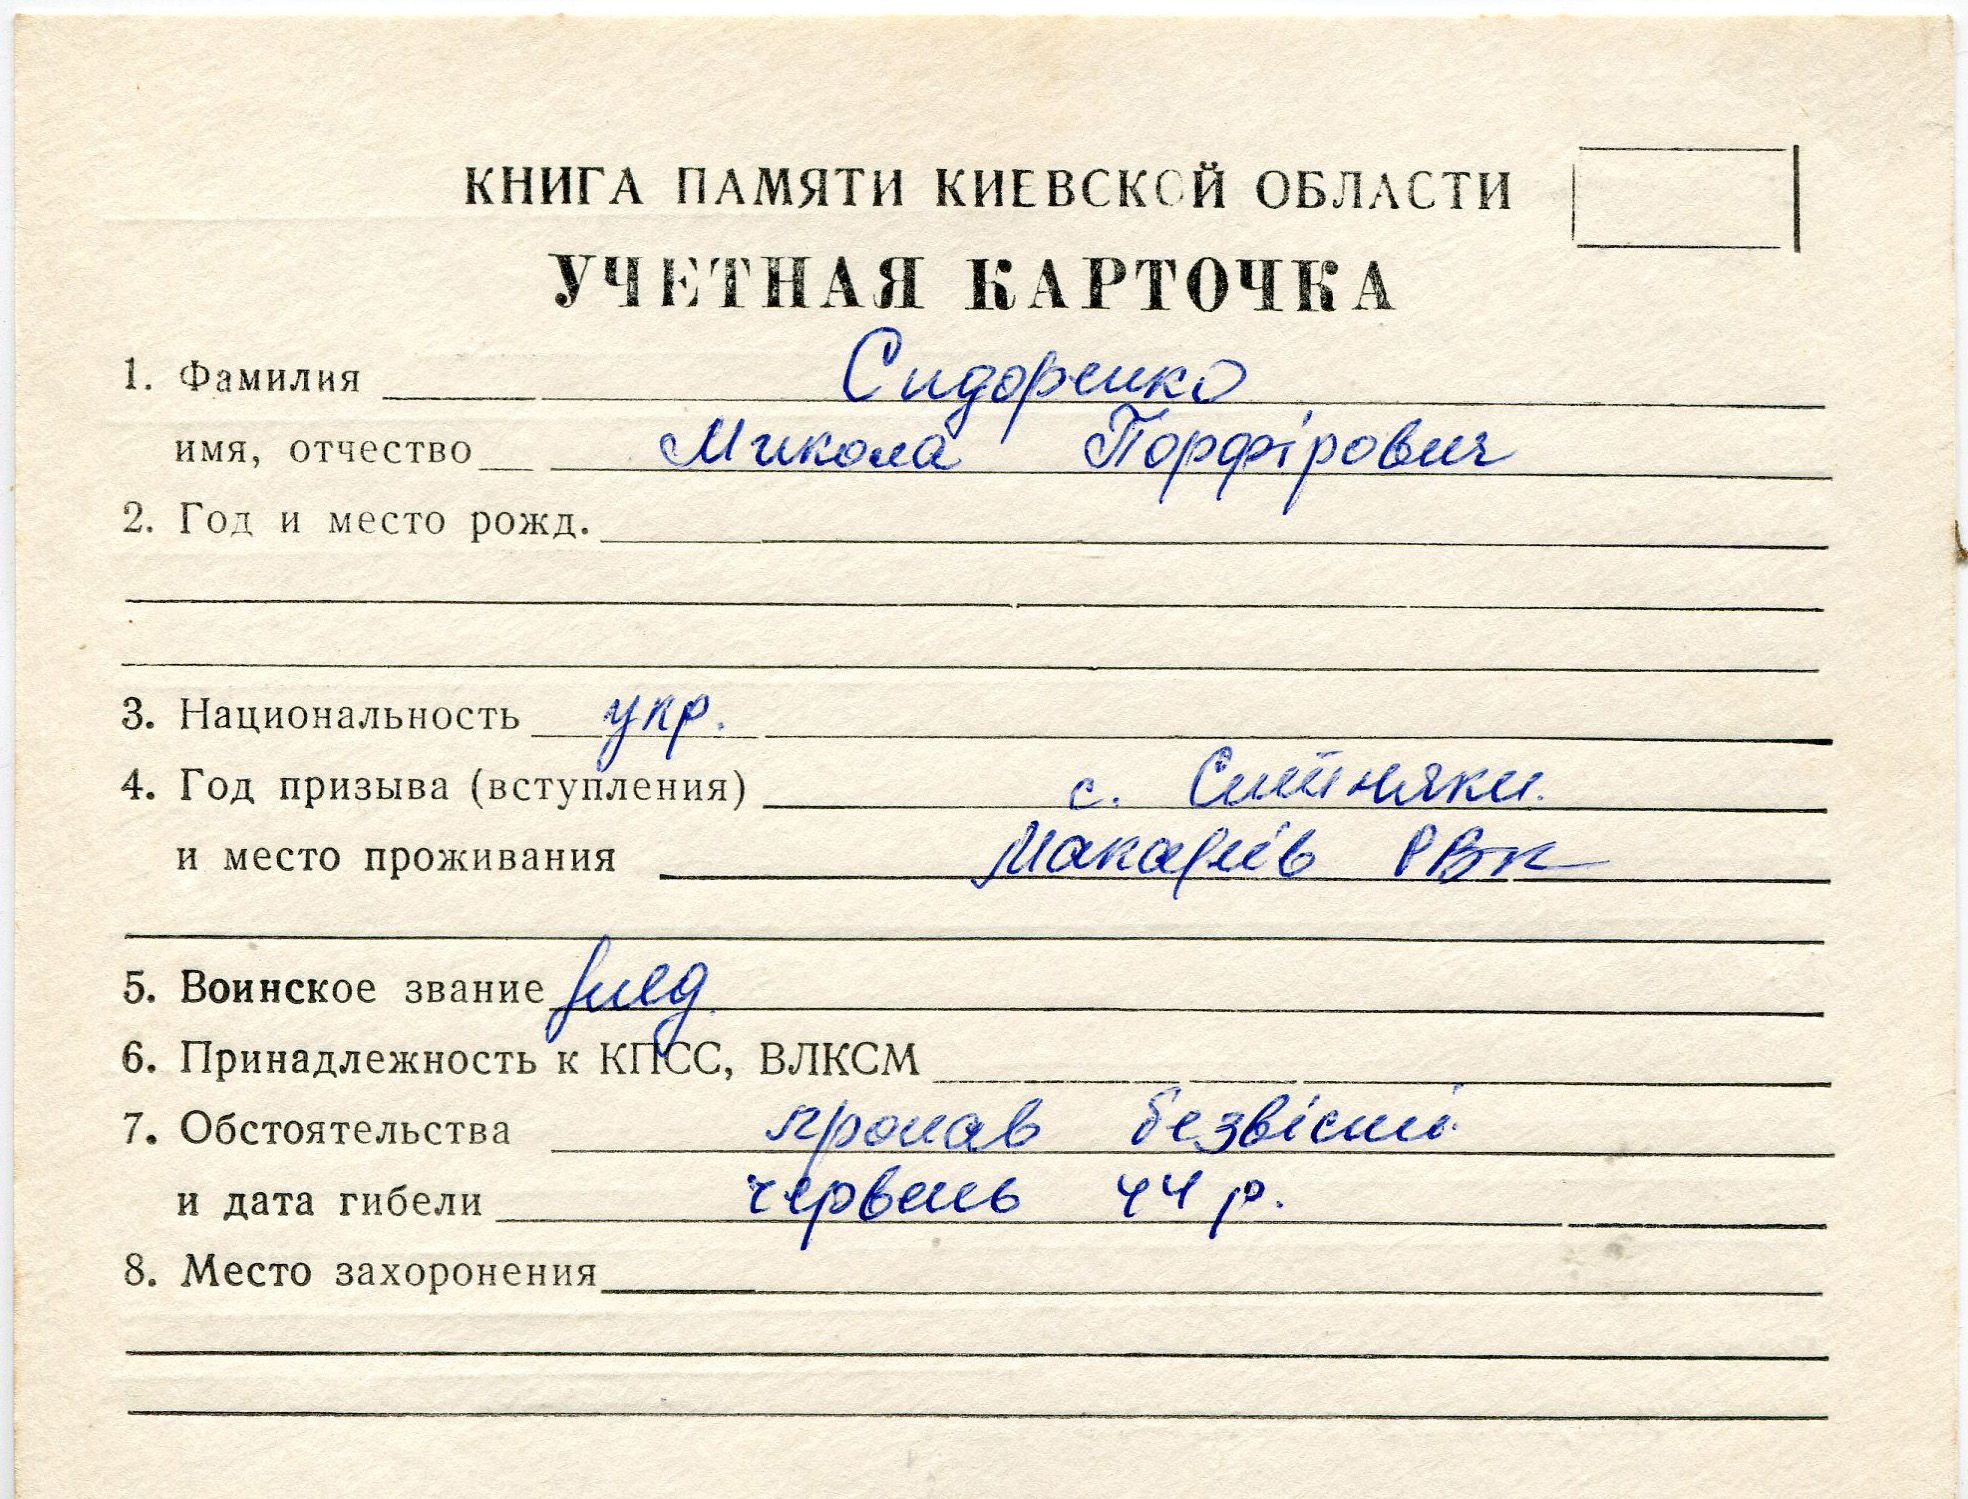 КНИГА ПАМЯТИ КИЕВСКОЙ ОБЛАСТИ
УЧЕТНАЯ КАРТОЧКА
1. Фамилия Сидоренко
имя, отчество Микола Порфірович
2. Год и место рожд.
3. Национальность укр.
4. Год призыва (вступления) с. Ситняки.
и место проживания Макарів РВК
5. Воинское звание
6. Принадлежность к КПСС, ВЛКСМ
7. Обстоятельства пропав безвісті
и дата гибели червень 44 р.
8. Место захоронения